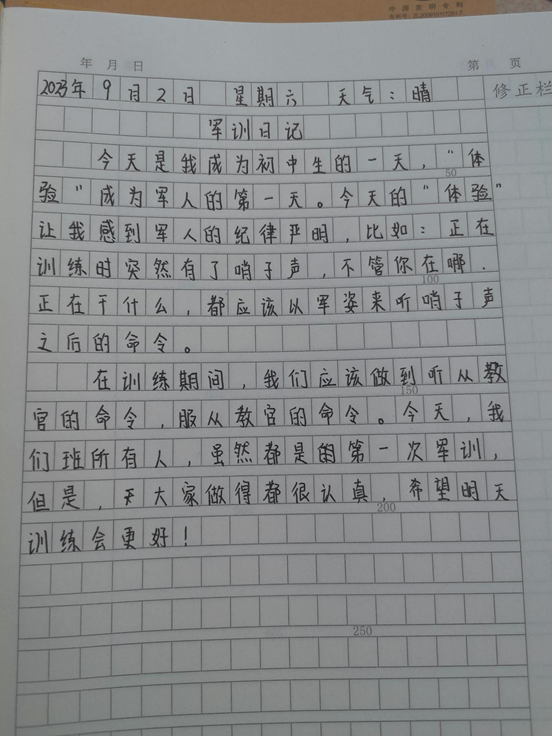 中国发明专利
年 月 日 第 页
2023年9月2日 星期六 天气：晴 修正栏
军训日记
今天是我成为初中生的一天，“体
50
验”成为军人的第一天。今天的“体验”
让我感到军人的纪律严明，比如：正在
训练时突然有了哨子声，不管你在哪.
100
正在干什么，都应该以军姿来听哨子声
之后的命令。
在训练期间，我们应该做到听从教
150
官的命令，服从教官的命令。今天，我
们班所有人，虽然都是第一次军训，
但是，大家做得都很认真，希望明天
200
训练会更好！
250